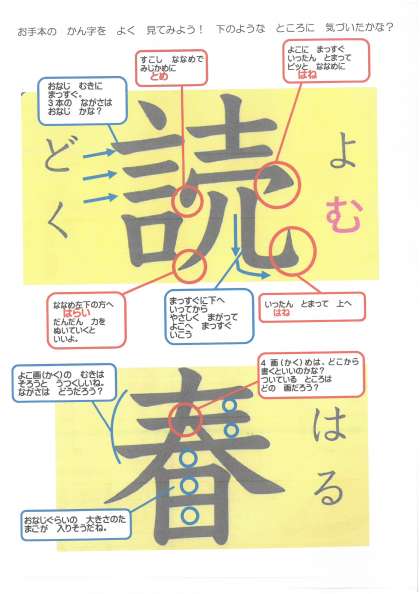 お手本の　かん字を　よく　見てみよう！　下のような　ところに　気づいたかな？
すこし　ななめで
みじかめに
とめ
よこに　まっすぐ
いったん　とまって
ピッと　ななめに
はね
おなじ　むきに
まっすぐ。
３本の　ながさは
おなじ　かな？
読
どく
よむ
ななめ左下の方へ
はらい
だんだん　力を
ぬいていくと
いいよ。
まっすぐに下へ
いってから
やさしく　まがって
よこへ　まっすぐ
いこう
いったん　とまって　上へ
はね
よこ画(かく)の　むきは
そろうと　うつくしいね。
ながさは　どうだろう？
４画(かく)めは、どこから
書くといいのかな？
ついている　ところは
どの　画だろう？
春
はる
おなじぐらいの　大きさのた
まごが　入りそうだね。